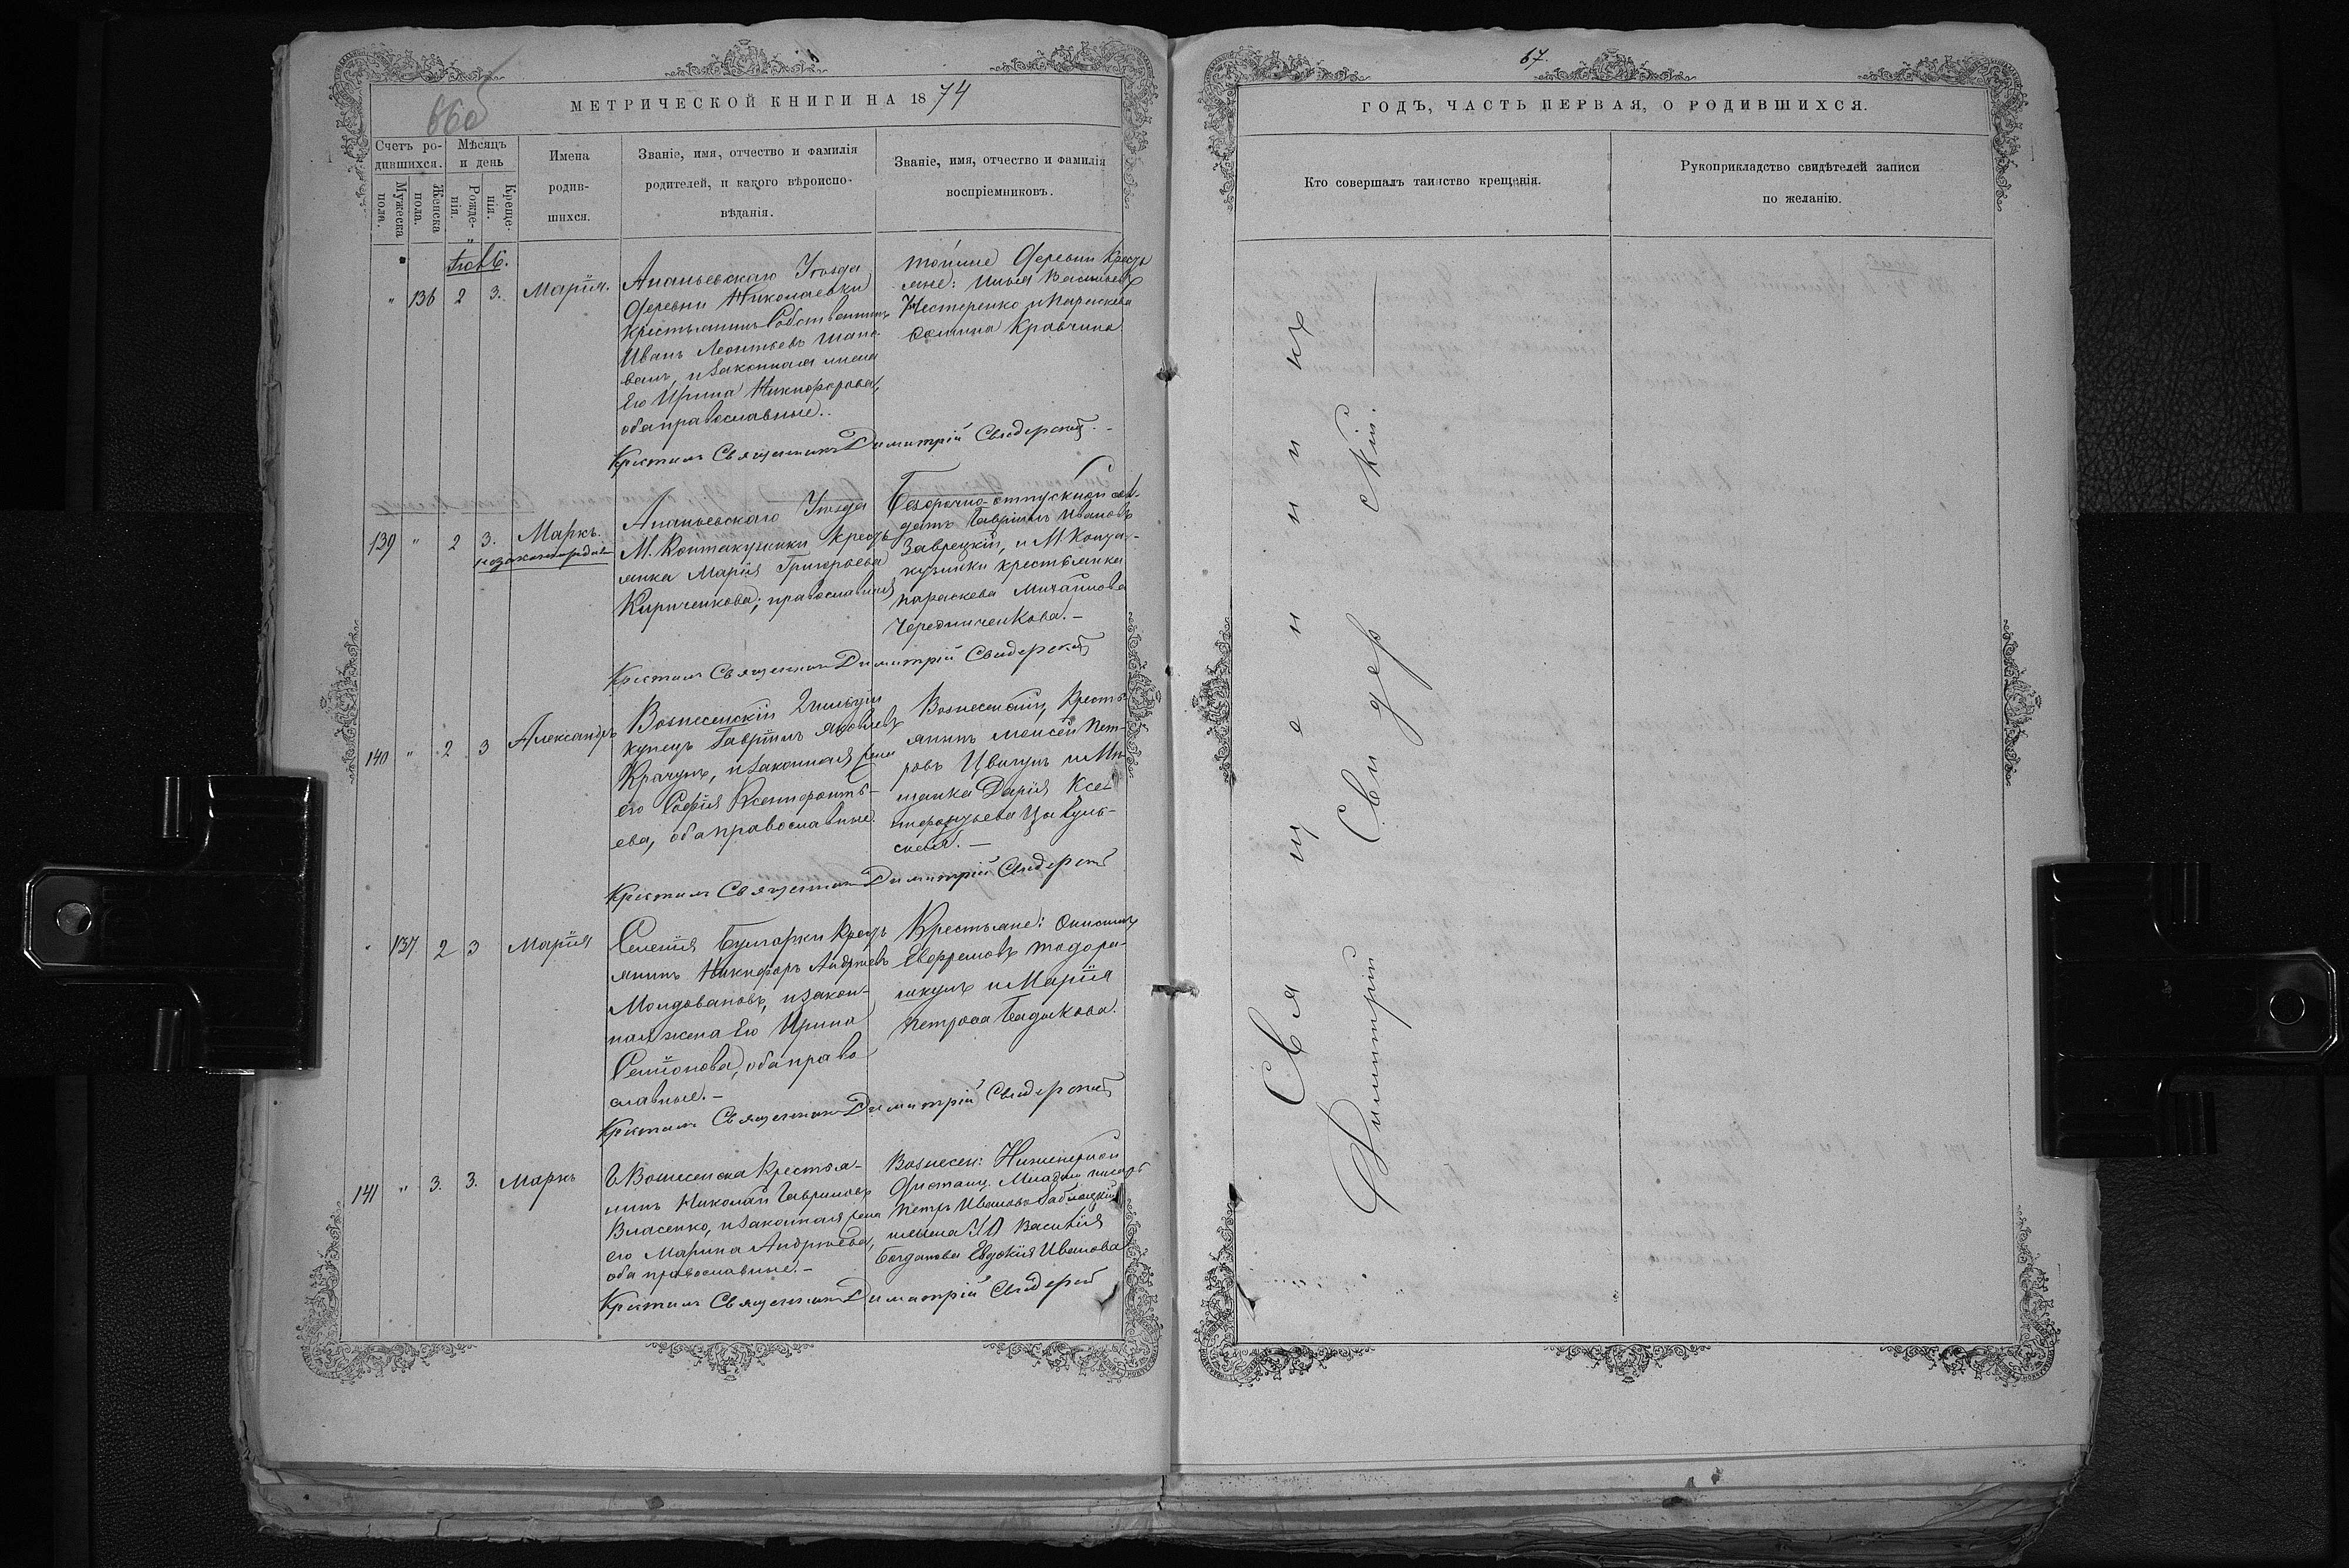 66 об
МЕТРИЧЕСКОЙ КНИГИ НА 1874
Счетъ ро-
дившихся.
Мужеска пола.
Женска пола.
Мѣсяцъ
и день
Рожде-
нія.
Креще-
нія.
Имена
родив-
шихся.
Званіе, имя, отчество и фамилія
родителей, и какого вѣроиспо-
вѣданія.
Званіе, имя, отчество и фамилія
воспріемниковъ.
" 136 2 3. Марія.
Ананьевскаго Уѣзда
деревни Николаевки
Крестьянинъ Собственникъ
Иванъ Леонтьевъ
и законная жена
Его Ирина Никифорова,
оба православные.
деревни Кресть
яне: Илья Васильевъ
Нестеренко и Параскева
Кравчина
Крестилъ Священникъ Димитрій Свидерскій
139 " 2 3. Маркъ.
незаконнорожден
Ананьевскаго Уѣзда
М. Кантакузинки Кресть
янка Марія Григорьева
Кириченкова, православная
Безсрочно-отпускной сол-
датъ Гавріилъ Ивановъ
Заврецкій, и М. Канта-
кузинки крестьянка
Параскева Михайлова
Чередниченкова. -
Крестилъ Священникъ Димитрій Свидерскій
140 " 2 3 Александръ
Вознесенскій 2 гильдіи
купецъ Гавріилъ Яковлевъ
Крачунъ, и законная жена
его Софія Ксенофонть-
ева, оба православные.
Вознесенскіи, Кресть
янинъ Моисей Пет-
ровъ Цвигунъ и Мѣ-
щанка Дарія Ксе-
нофонтьева Цыбуль-
ская. -
Крестилъ Священникъ Димитрій Свидерскій
" 137 2 3 Марія
Селенія Булгарки Кресть
янинъ Никифоръ Андреевъ
Молдовановъ, и закон-
ная жена Его Ирина
Семіонова, оба право
славные. -
Крестьяне: Онисимъ
Евфремовъ Тодора-
шкулъ и Марія
Петрова Бадикова.
Крестилъ Священникъ Димитрій Свидерскій
141 " 3. 3. Маркъ
Г. Вознесенска Крестья-
нинъ Николай Гавриловъ
Власенко, и законная жена
его Марина Андреева,
оба православные. -
Вознесен: Инженерной
Дистанц. Младшій писарь
Петръ Ивановъ Заблоцкій
и жена Василія
Богданова Евдокія Иванова
Крестилъ Священникъ Димитрій Свидерскій
67.
ГОДЪ, ЧАСТЬ ПЕРВАЯ, О РОДИВШИХСЯ.
Кто совершалъ таинство крещенія.
Рукоприкладство свидѣтелей записи
по желанію.
Священникъ
Димитрій Свидерскій.